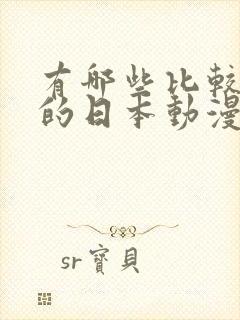 有哪些比較
的日本動漫
sr寶貝